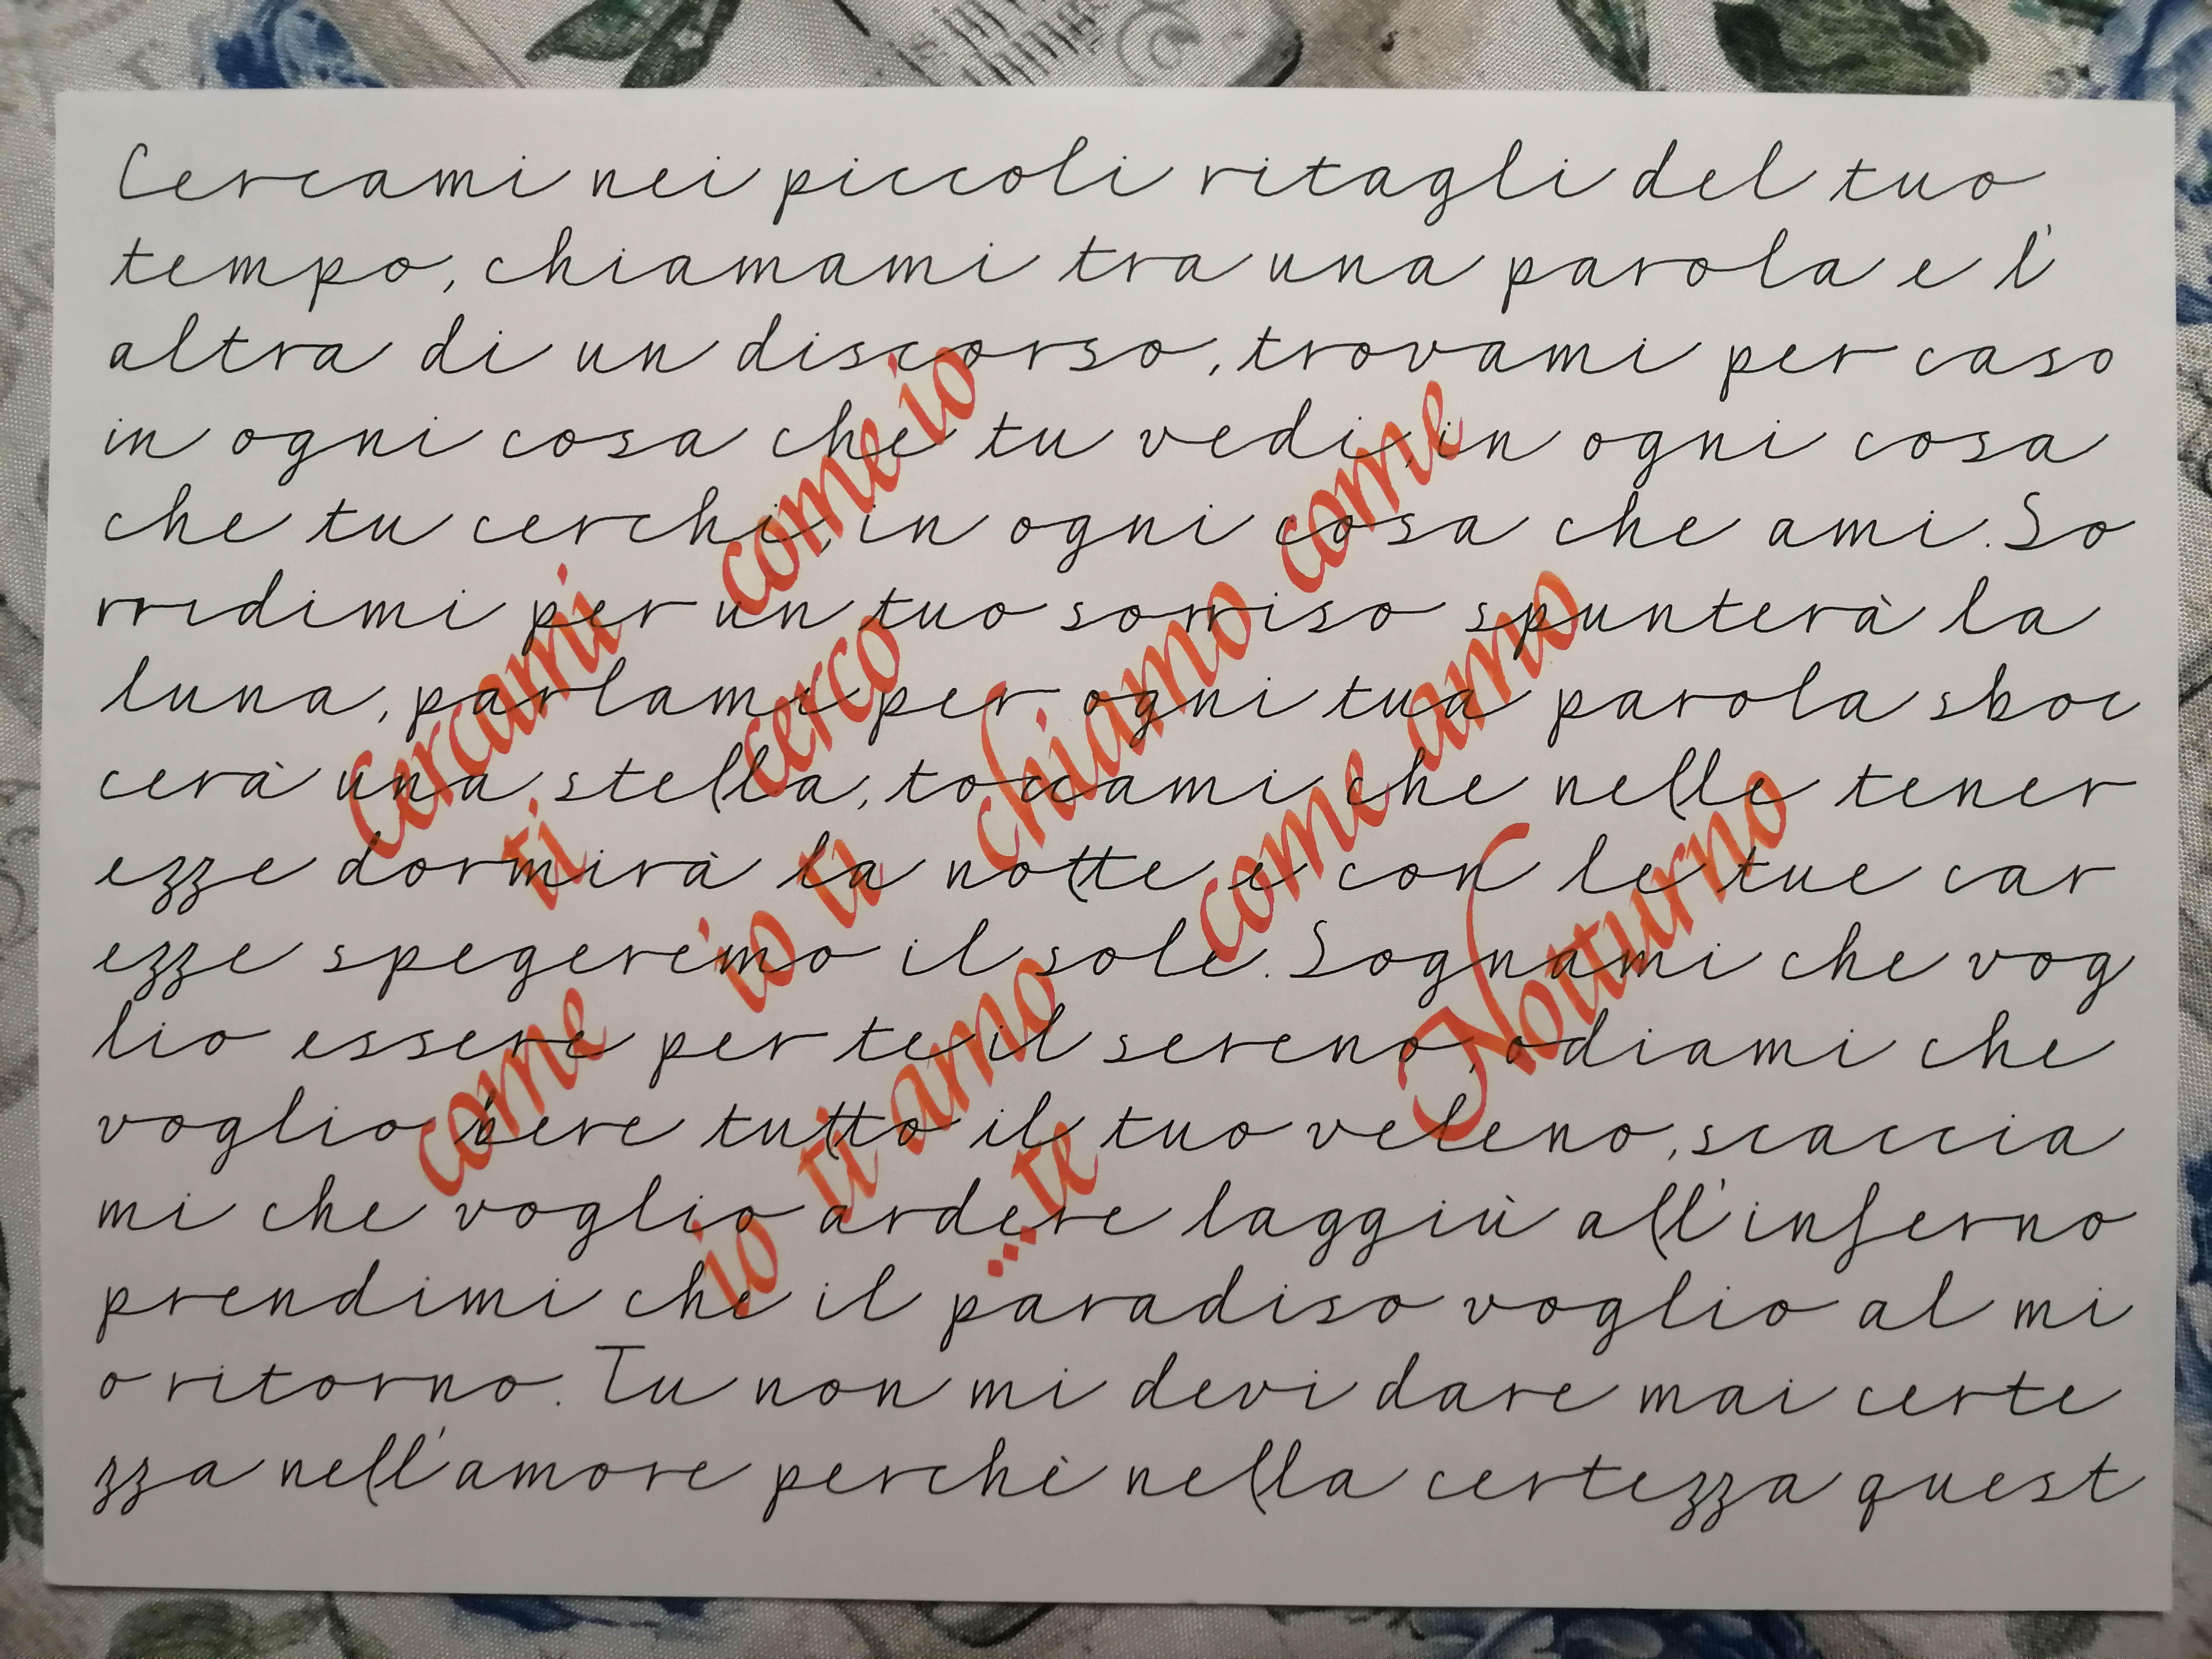 Cercami nei piccoli ritagli del tuo
tempo, chiamami tra una parola e l'
altra di un discorso, trovami per caso
in ogni cosa che tu vedi, in ogni cosa
che tu cerchi, in ogni cosa che ami. So
rridimi per un tuo sorriso spunterà la
luna, parlami per ogni tua parola sboc
cerà una stella, toccami che nelle tener
ezze dormirà la notte e con le tue car
ezze spegeremo il sole. Sognami che vog
lio essere per te il sereno, odiami che
voglio bere tutto il tuo veleno, scaccia
mi che voglio ardere laggiù all'inferno
prendimi che il paradiso voglio al mi
o ritorno. Tu non mi devi dare mai certe
zza nell'amore perchè nella certezza quest
Cercami come io
ti cerco
come io ti chiamo come
io ti amo come amo
...te
Notturno